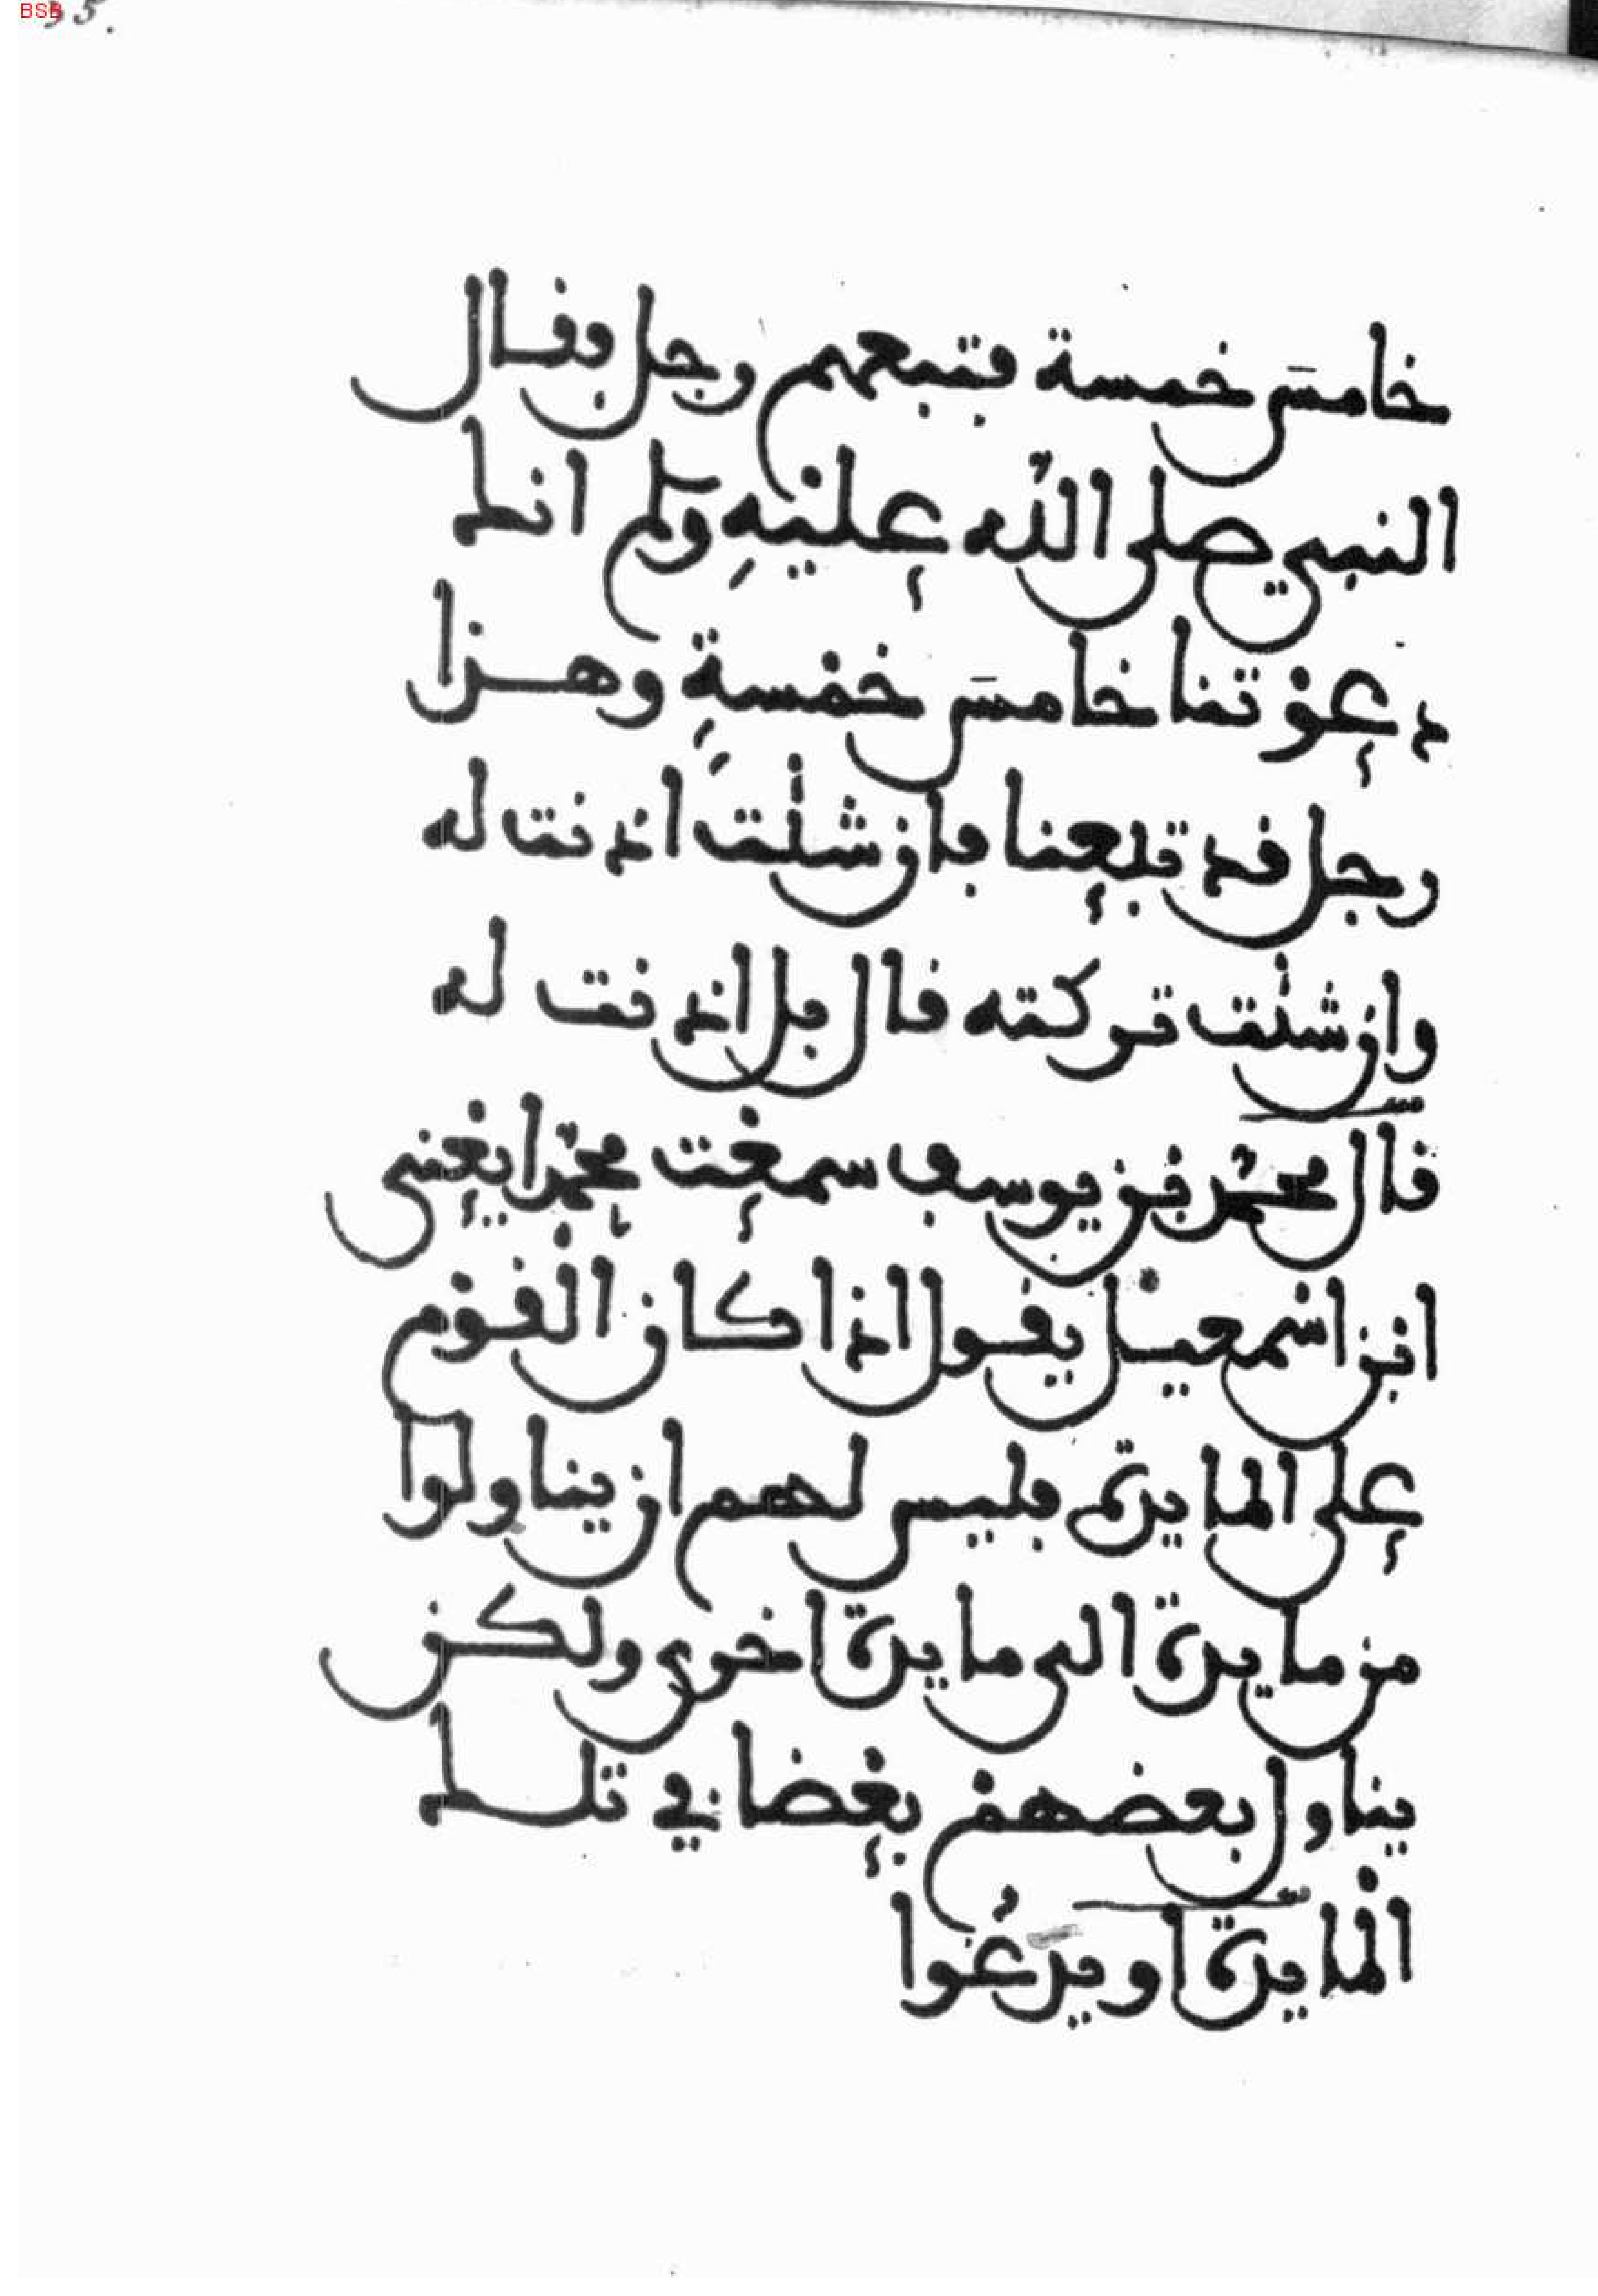 BSB
خامسَ خمسة فتبعهم رجل فقال
النبي صلى اللّه علَيْهِ وسلم انك
دعوْتنا خامسَ خمْسةٍ وهذا
رجل قد تبعنا فان شئت اذنت له
وان شئت تركته قال بل اذنت له
قال محمّد بن يوسف سمعْت محمّدا يعْني
ابن اسْمعيْل يقول اذا كان الْقوْم
على المايدة فليس لهم ان يناولوا
من مايدة الى مايدة اخرى ولكن
يناول بعضهمْ بعْضا في تلك
الْمايدة او يدَعُوا